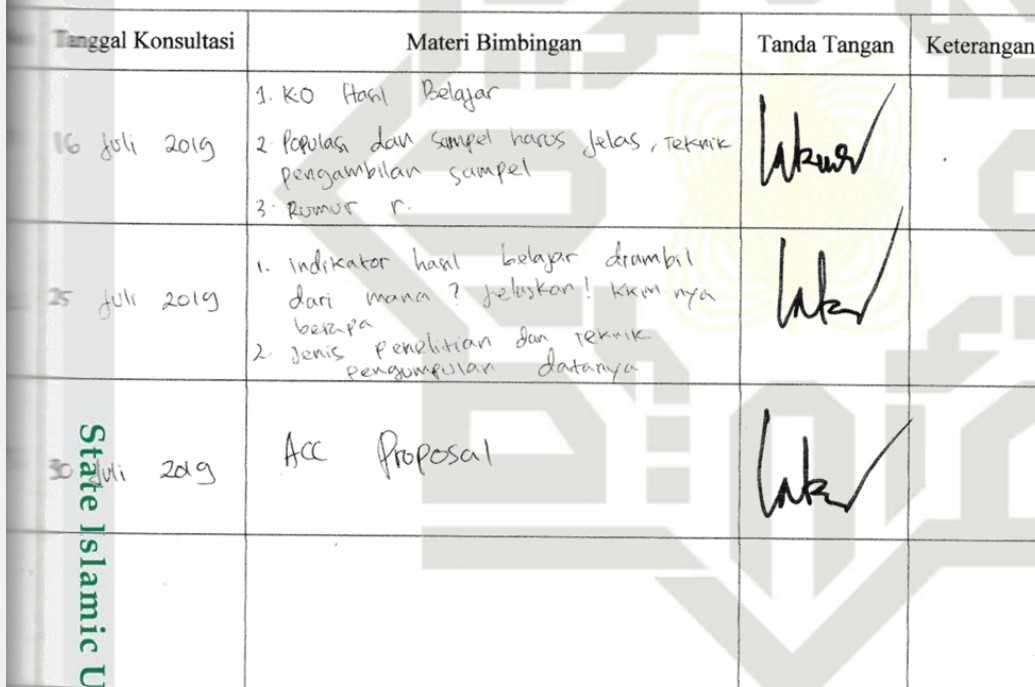 Tanggal Konsultasi Materi Bimbingan Tanda Tangan Keterangan
1. K.O Hasil Belajar
16 Juli 2019
2. Populasi dan sampel harus jelas, Teknik
pengambilan sampel
3. Rumur r.
1. indikator hasil belajar diambil
25 Juli 2019
dari mana? Jelaskan! KKM nya
berapa
2. Jenis Penelitian dan Teknik
pengumpulan datanya
30 Juli 2019
Acc Proposal
State Islamic U